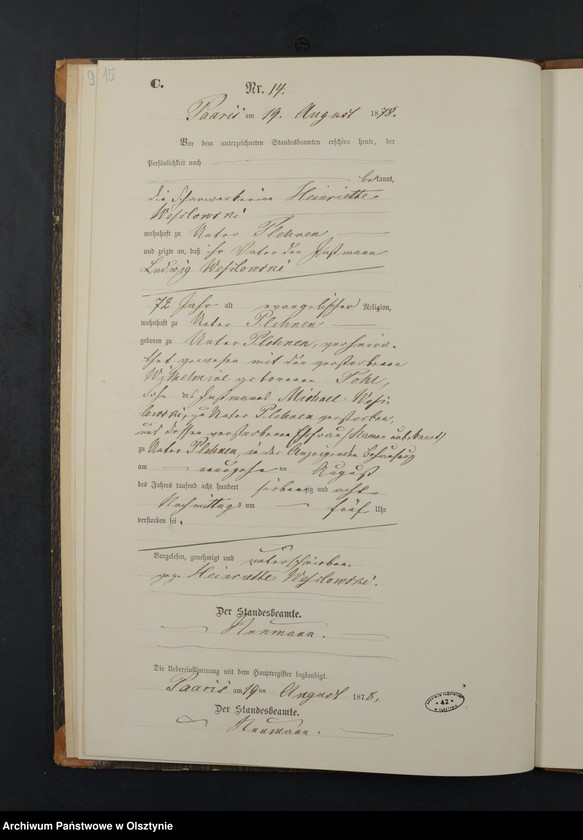 9 15
C.
Nr. 14.
Paaris am 19. August 1878.
Vor dem unterzeichneten Standesbeamten erschien heute, der
Persönlichkeit nach
bekannt,
die Scharwerkerin Henriette
Wessolowski
wohnhaft zu Unter Plehnen,
und zeigte an, daß ihr Vater der Instmann
Ludwig Wessolowski
72 Jahr alt evangelischer Religion,
wohnhaft zu Unter Plehnen
geboren zu Unter Plehnen, verheira-
thet gewesen mit der verstorbenen
Wilhelmine geborenen Pohl,
Sohn des Instmanns Michael
zu Unter Plehnen verstorben,
und dessen verstorbenen Ehefrau (Namen unbekannt)
zu Unter Plehnen, in der Anzeigenden Behausung
am August
des Jahres tausend acht hundert siebenzig und acht
Nachmittags um fünf Uhr
verstorben sei.
Vorgelesen, genehmigt und unterschrieben.
gez. Henriette Wessolowski.
Der Standesbeamte.
Neumann.
Die Uebereinstimmung mit dem Hauptregister beglaubigt.
Paaris am 19ten August 1878.
Der Standesbeamte.
Neumann.
42
Archiwum Państwowe w Olsztynie